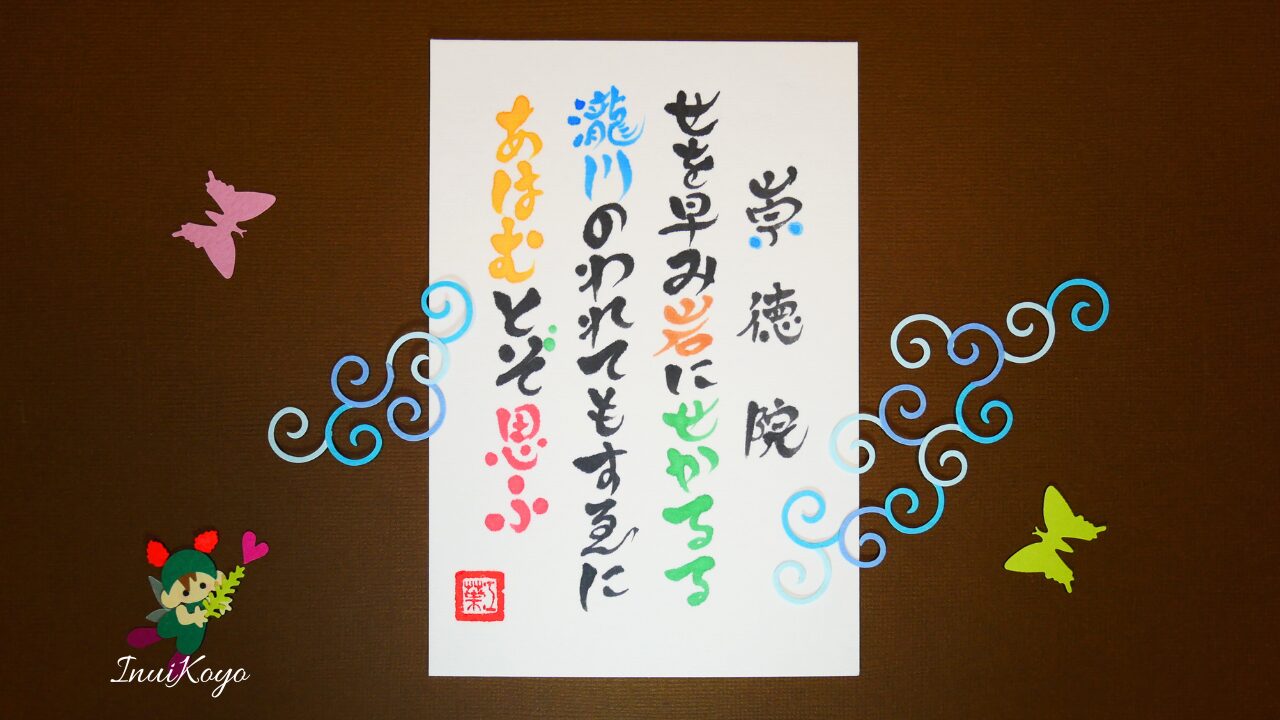 崇徳院
せを早み岩にせかるる
瀧川のわれてもすゑに
あはむとぞ思ふ
紅葉
InuiKoyo